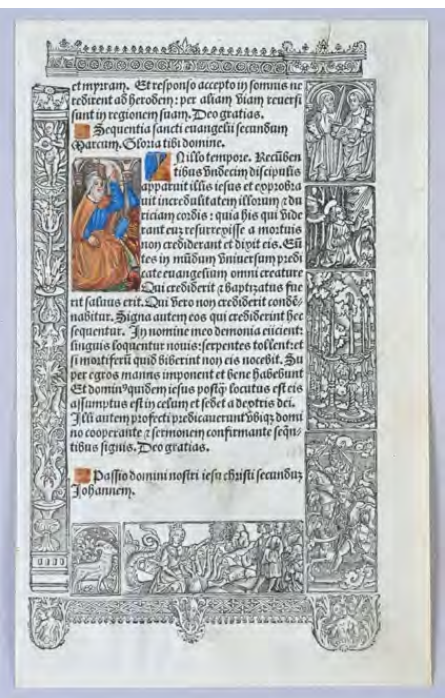 et myrram. Et responso accepto in somnis ne
redirent ad herodem: per aliam viam reuersi
sunt in regionem suam. Deo gratias.
Sequentia sancti euangelii secundum
Marcum. Gloria tibi domine.
In illo tempore. Recūben
tibus vndecim discipulis
apparuit illis iesus et exprobra
uit incredulitatem illorum ⁊ du
riciam cordis: quia his qui vide
rant eum resurrexisse a mortuis
non crediderant et dixit eis. Eū
tes in mūdum vniuersum predi
cate euangelium omni creature
Qui crediderit ⁊ baptizatus fue
rit saluus erit. Qui vero non crediderit condē
nabitur. Signa autem eos qui crediderint hec
sequentur. In nomine meo demonia eiicient:
linguis loquentur nouis: serpentes tollent: et
si mortiferū quid biberint non eis nocebit. Su
per egros manus imponent et bene habebunt
Et domin⁹ quidem iesus postq̄ locutus est eis
assumptus est in celum et sedet a dextris dei.
Illi autem profecti predicauerunt vbiq; domi
no cooperante ⁊ sermonem confirmante seqn̄
tibus signis. Deo gratias.
Passio domini nostri iesu christi secunduz
Johannem.